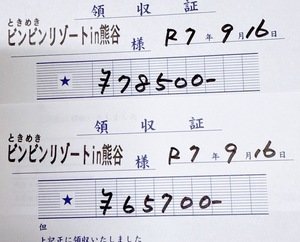 領収証
ときめき
ビンビンリゾートin熊谷 様 R7年9月16日
★ ¥78500-
領収証
ときめき
ビンビンリゾートin熊谷 様 R7年9月16日
★ ¥65700-
但
上記正に領収いたしました